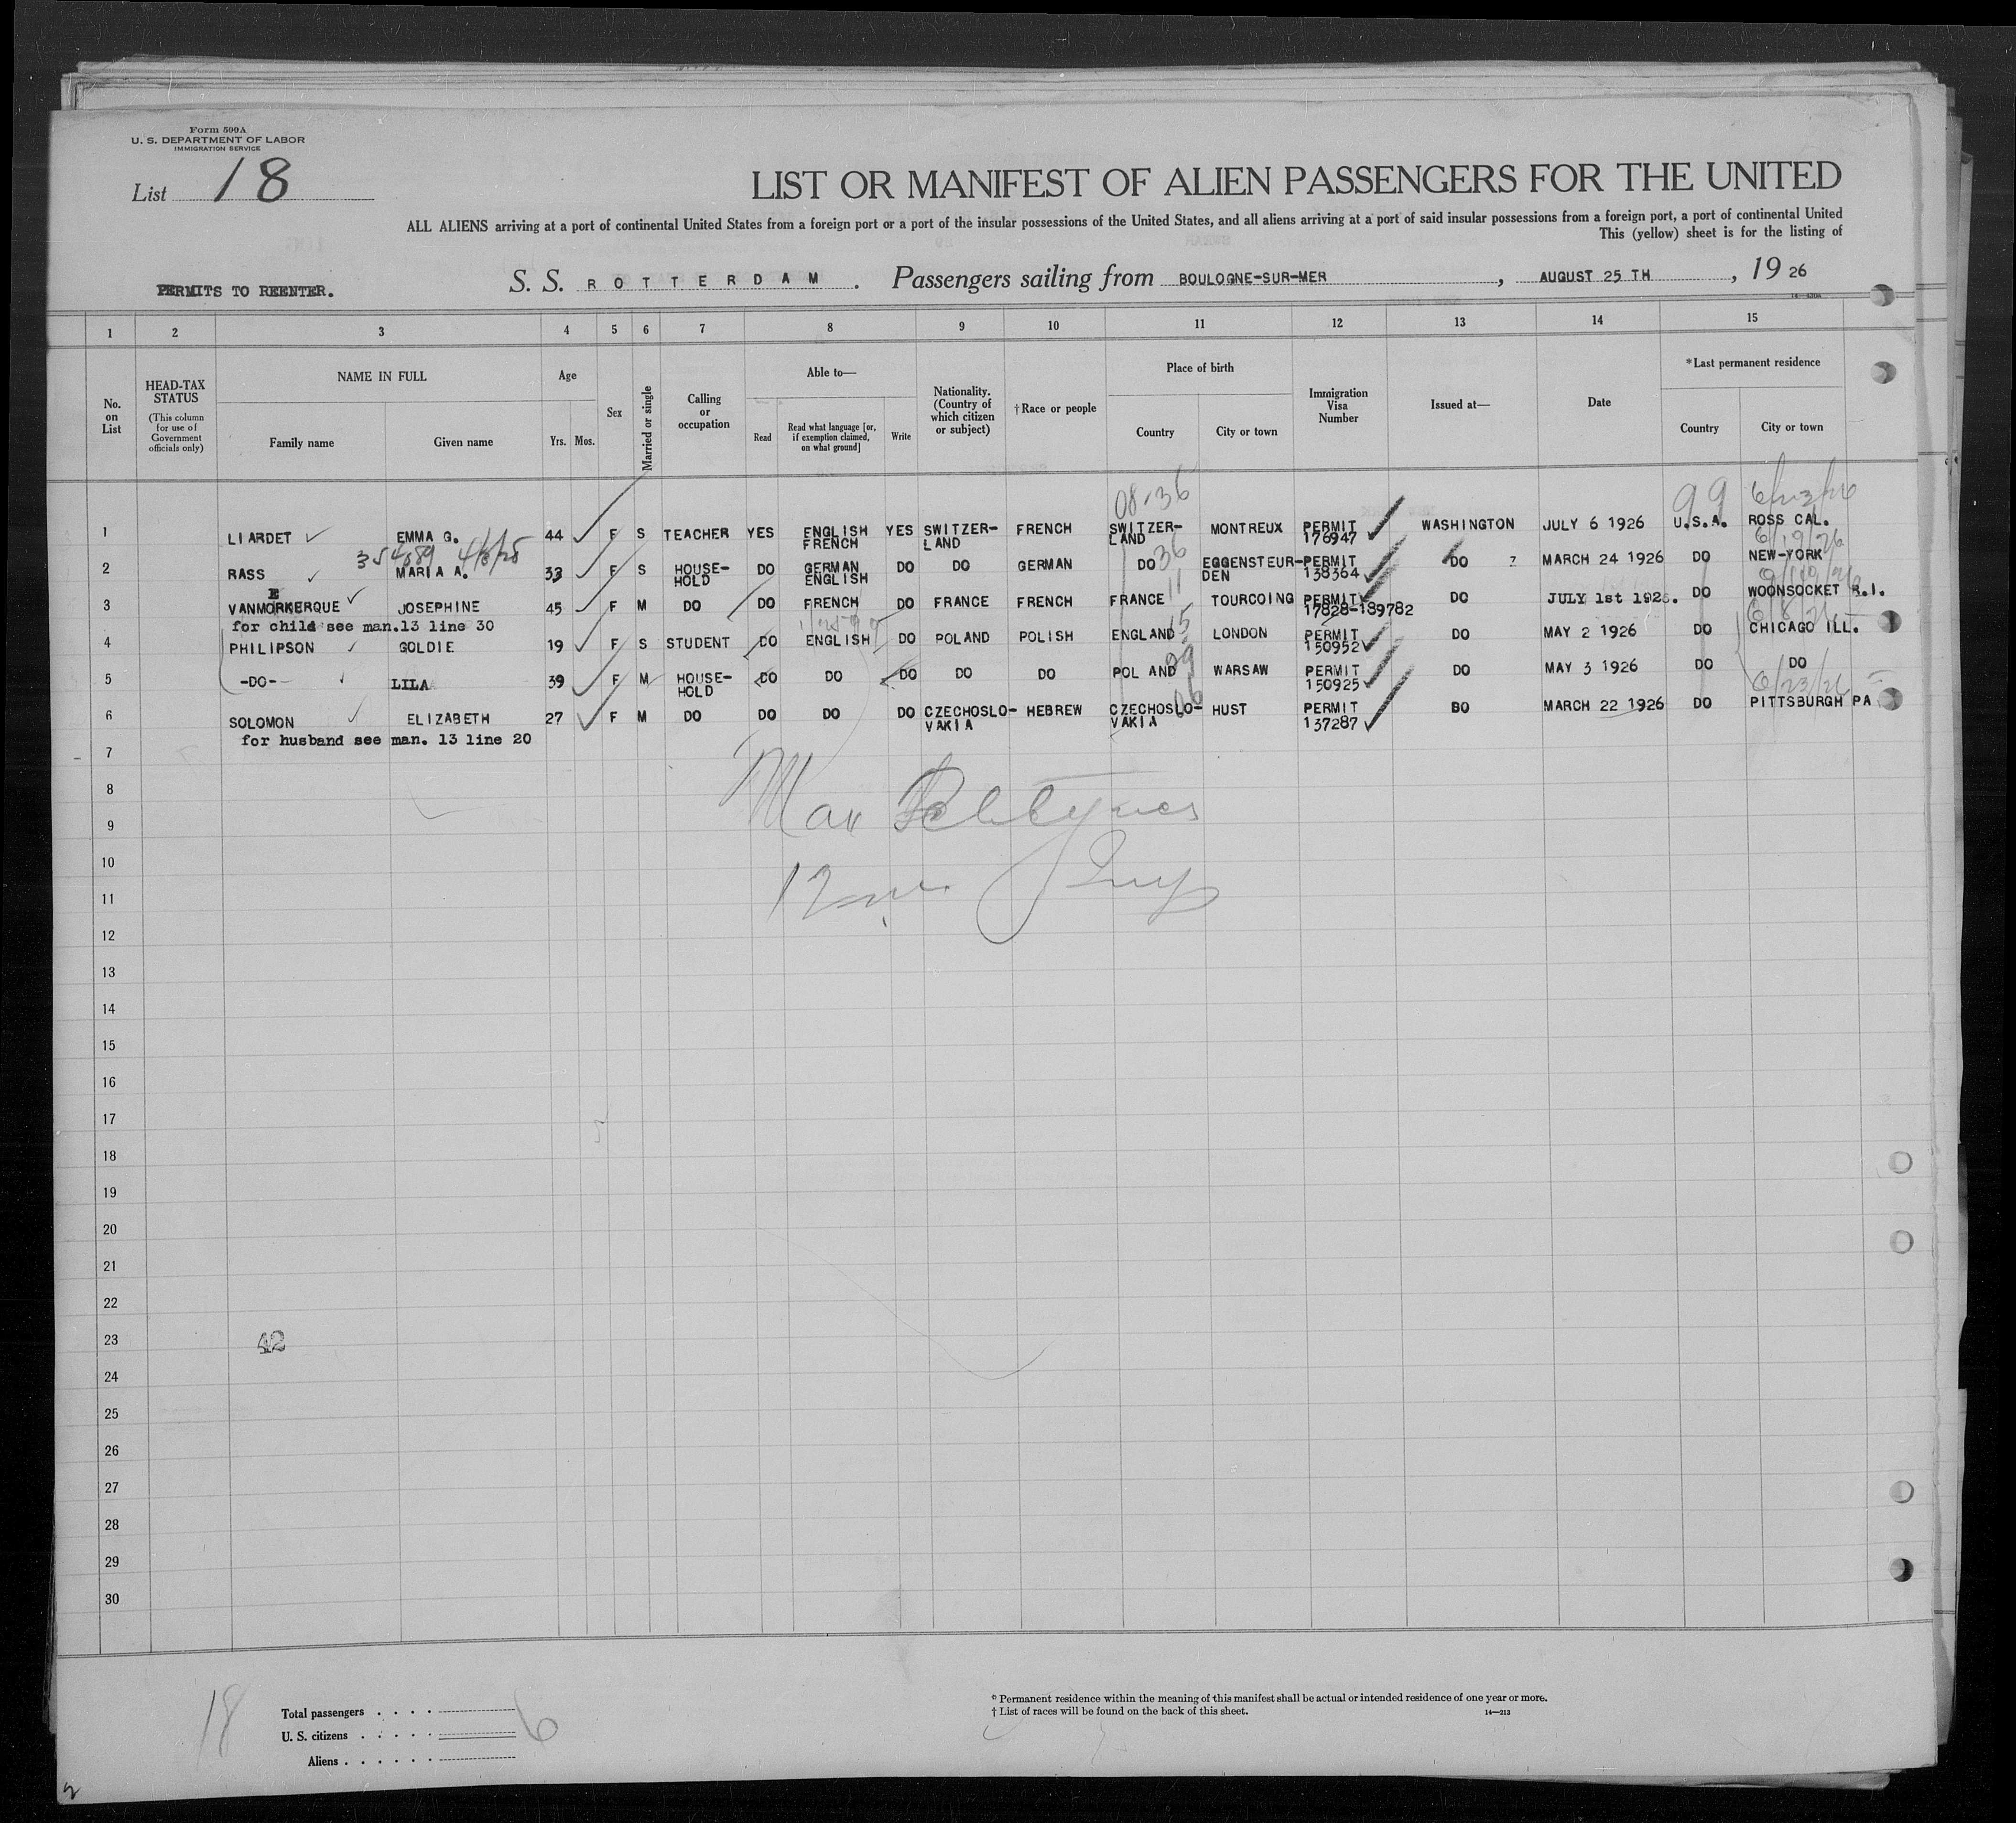 Form 500A
U. S. DEPARTMENT OF LABOR
IMMIGRATION SERVICE
List 18
LIST OR MANIFEST OF ALIEN PASSENGERS FOR THE UNITED
ALL ALIENS arriving at a port of continental United States from a foreign port or a port of the insular possessions of the United States, and all aliens arriving at a port of said insular possessions from a foreign port, a port of continental United
This (yellow) sheet is for the listing of
PERMITS TO REENTER.
S. S. ROTTERDAM. Passengers sailing from BOULOGNE-SUR-MER, AUGUST 25 TH, 19 26
1 2 3 4 5 6 7 8 9 10 11 12 13 14 15
No. on List
HEAD-TAX STATUS
(This column for use of Government officials only)
NAME IN FULL
Family name Given name
Age
Yrs. Mos.
Sex
Married or single
Calling or occupation
Able to—
Read
Read what language [or, if exemption claimed, on what ground]
Write
Nationality. (Country of which citizen or subject)
†Race or people
Place of birth
Country City or town
Immigration Visa Number
Issued at—
Date
*Last permanent residence
Country City or town
08-36 99 6/23/26
1 LIARDET EMMA G. 44 F S TEACHER YES ENGLISH FRENCH YES SWITZER-LAND FRENCH SWITZER-LAND MONTREUX PERMIT 176947 WASHINGTON JULY 6 1926 U.S.A. ROSS CAL.
354889 4/8/25 36 6/19/26
2 RASS MARIA A. 33 F S HOUSE-HOLD DO GERMAN ENGLISH DO DO GERMAN DO EGGENSTEUR-DEN PERMIT 138364 DO ? MARCH 24 1926 DO NEW-YORK
E 11
3 VANMORKERQUE JOSEPHINE 45 F M DO DO FRENCH DO FRANCE FRENCH FRANCE TOURCOING PERMIT 17828-189782 DO JULY 1st 1926. DO WOONSOCKET R.I.
for child see man.13 line 30
15 6/8/26
4 PHILIPSON GOLDIE 19 F S STUDENT DO ENGLISH DO POLAND POLISH ENGLAND LONDON PERMIT 150952 DO MAY 2 1926 DO CHICAGO ILL.
29
5 -DO- LILA 39 F M HOUSE-HOLD DO DO DO DO DO POLAND WARSAW PERMIT 150925 DO MAY 3 1926 DO DO
06 6/23/26
6 SOLOMON ELIZABETH 27 F M DO DO DO DO CZECHOSLO-VAKIA HEBREW CZECHOSLO-VAKIA HUST PERMIT 137287 DO MARCH 22 1926 DO PITTSBURGH PA
for husband see man. 13 line 20
7
8
Max
9
10
11
12
13
14
15
16
17
18
19
20
21
22
23 42
24
25
26
27
28
29
30
18
Total passengers
U. S. citizens 6
Aliens
* Permanent residence within the meaning of this manifest shall be actual or intended residence of one year or more.
† List of races will be found on the back of this sheet.
14—213